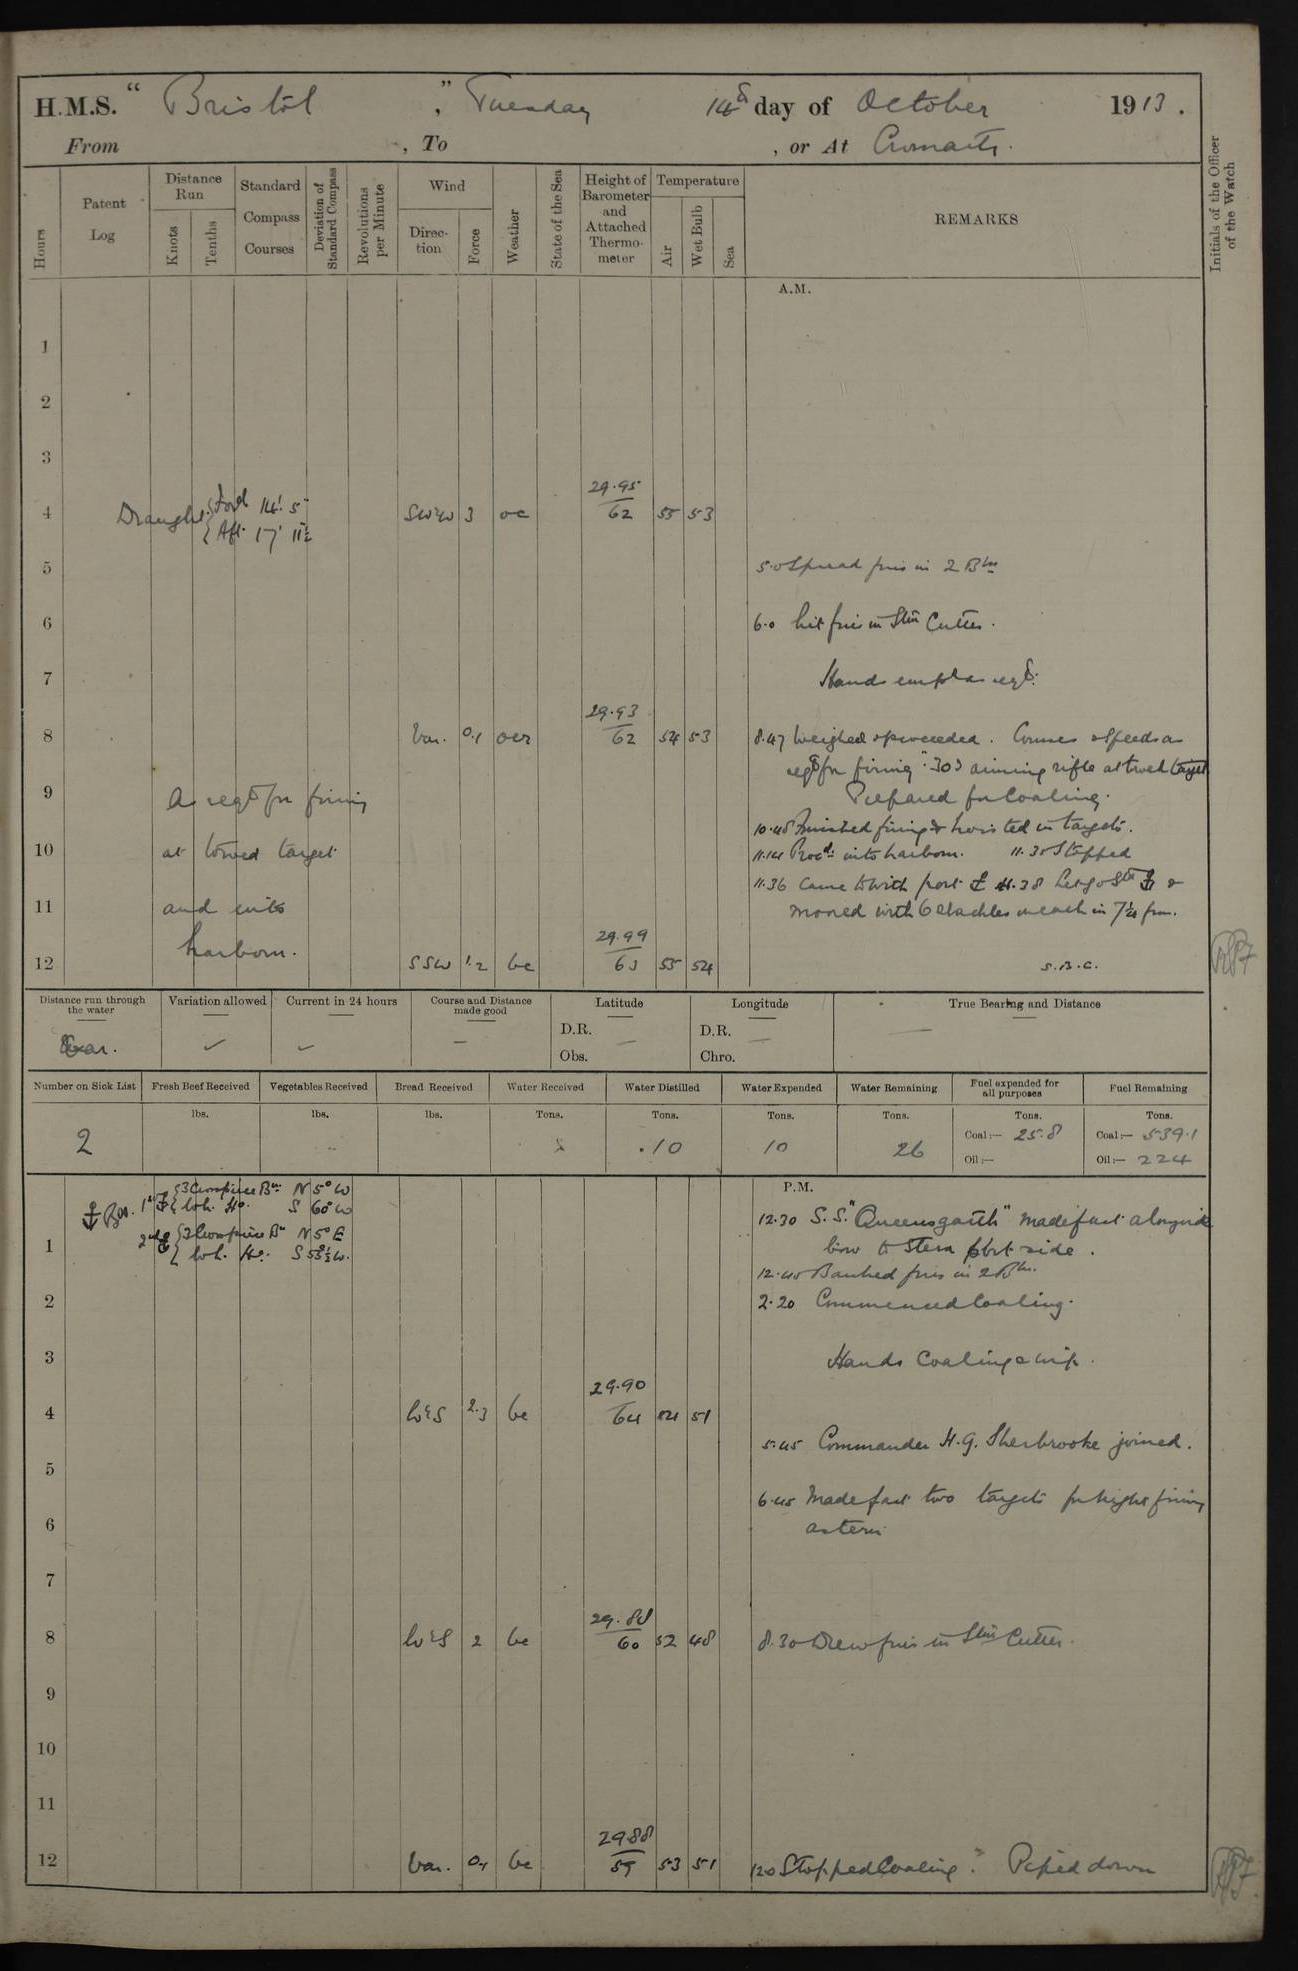 H.M.S. " Bristol ", Tuesday 14th day of October 1913.
From , To , or At Cromarty.
Hours
Patent Log
Distance Run
Knots
Tenths
Standard Compass Courses
Deviation of Standard Compass
Revolutions per Minute
Wind
Direction
Force
Weather
State of the Sea
Height of Barometer and Attached Thermometer
Temperature
Air
Wet Bulb
Sea
REMARKS
Initials of the Officer of the Watch
A.M.
1
2
3
4 Draught { Ford 14' 5"
{ Aft 17' 11½
SW'W 3 oc 29.95 62 55 53
5 5.0 Spread fires in 2 Brs
6 6.0 Lit fires in Stm Cutter.
7 Hands empld as reqd.
8 Var. 0.1 ocr 29.93 62 54 53 8.47 Weighed & proceeded. Courses & speeds as
reqd for firing ".303 aiming rifle at towed target
9 As reqd for firing Prepared for Coaling.
10.45 Finished firing & hoisted in targets.
10 at towed target 11.14 Procd. into harbour. 11.30 Stopped
11.36 Came to with port ⚓ 11.38 Let go Stbd ⚓ &
11 and into moored with 6 shackles on each in 7¼ fms.
harbour.
12 SSW 1.2 bc 29.99 63 55 54 S.B.C.
Distance run through the water
Variation allowed
Current in 24 hours
Course and Distance made good
Latitude
Longitude
True Bearing and Distance
D.R.
D.R.
Obs.
Chro.
Number on Sick List
Fresh Beef Received
Vegetables Received
Bread Received
Water Received
Water Distilled
Water Expended
Water Remaining
Fuel expended for all purposes
Fuel Remaining
lbs. lbs. lbs. Tons. Tons. Tons. Tons. Tons. Tons.
2 10 10 26 Coal:— 25.8 Coal:— 539.1
Oil:— Oil:— 224
P.M.
⚓ Brs. 1st ⚓ { 3 Crompiece Bn N 5° W
{ Wh. Ho. S 60° W
2nd ⚓ { 3 Crompiece Bn N 5° E
{ Wh. Ho. S 58½ W.
12.30 S.S. "Queensgarth" made fast alongside
1 bow to stern port side.
12.40 Banked fires in 2 Brs.
2 2.20 Commenced Coaling.
3 Hands Coaling ship.
4 W'S 2.3 bc 29.90 64 54 51
5.45 Commander H.G. Sherbrooke joined.
5
6.45 Made fast two targets for night firing
6 astern
7
8 W'S 2 bc 29.88 60 52 48 8.30 Drew fires in Stm Cutter.
9
10
11
12 Var. 0.1 bc 29.88 59 53 51 12.0 Stopped Coaling. Piped down